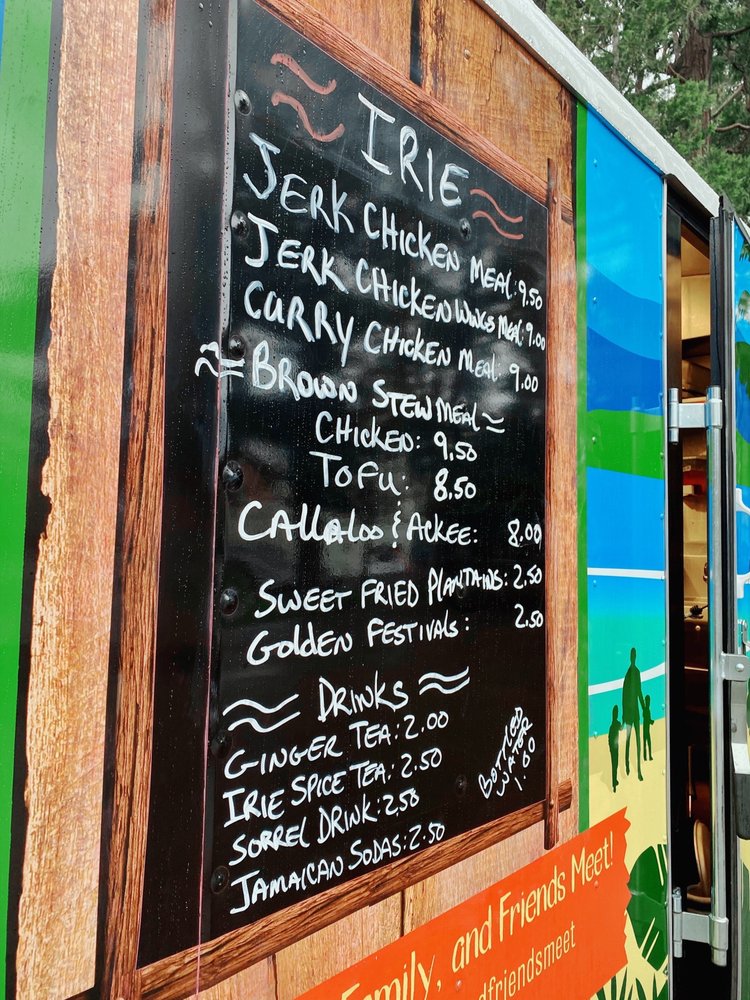 IRIE
JERK CHICKEN MEAL: 9.50
JERK CHICKEN WINGS MEAL: 9.00
CURRY CHICKEN MEAL: 9.00
BROWN STEW MEAL
CHICKEN: 9.50
TOFU: 8.50
CALLALOO & ACKEE: 8.00
SWEET FRIED PLANTAINS: 2.50
GOLDEN FESTIVALS: 2.50
DRINKS
GINGER TEA: 2.00
IRIE SPICE TEA: 2.50
SORREL DRINK: 2.50
JAMAICAN SODAS: 2.50
BOTTLED
WATER
1.00
Family, and Friends Meet!
dfriendsmeet